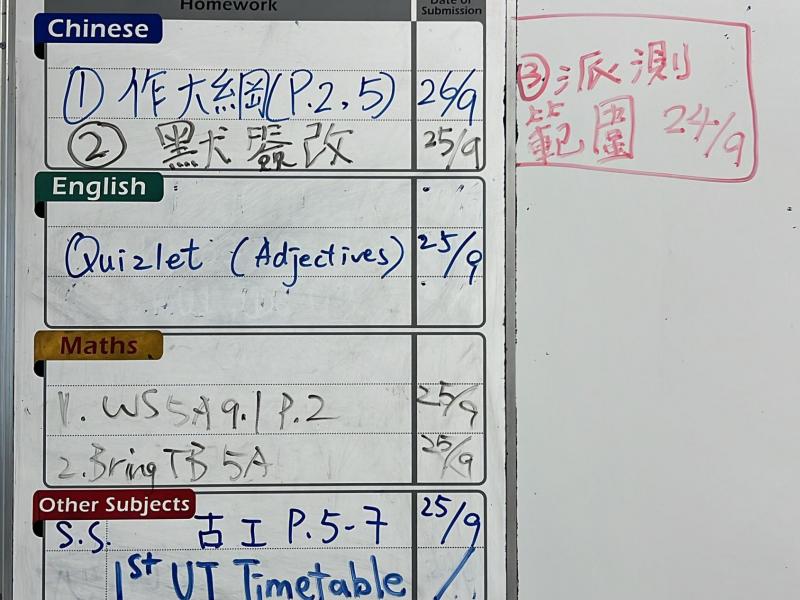 Homework
Date of Submission
Chinese
① 作大綱(P.2, 5) 26/9
② 默 改 25/9
③派測
範圍 24/9
English
Quizlet (Adjectives) 25/9
Maths
1. WS 5A 9.1 P.2 25/9
2. Bring TB 5A 25/9
Other Subjects
S.S. 古工 P.5-7 25/9
1st UT Timetable /